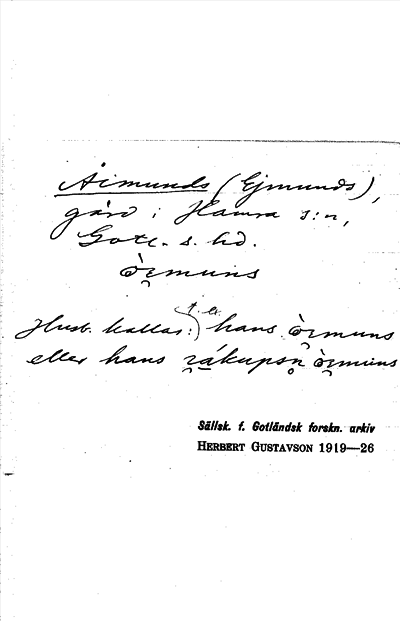 Äimunds (Ejmunds),
gård i Hamra s:n,
Gotl. s. hd.
ò̜imuns
Husb. kallas: hans
eller hans
Sällsk. f. Gotländsk forskn. arkiv
HERBERT GUSTAVSON 1919—26